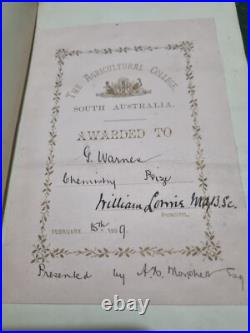 THE AGRICULTURAL COLLEGE
SOUTH AUSTRALIA.
AWARDED TO
G. Warnes
Chemistry Prize
William Lowrie M.A. B.Sc.
PRINCIPAL.
FEBRUARY 15th 1889.
Presented by A. D. Esq